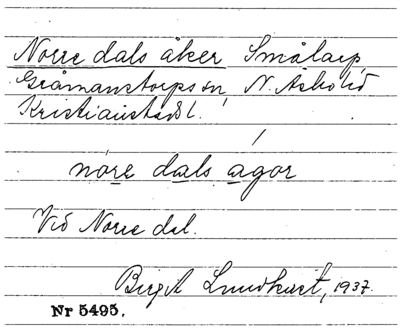 Norre dals åker Smålarp
Gråmanstorps sn, N. Åsbo hd
Kristianstads l.
nóre dals ágor
Vid Norre dal.
Birgit Lundkvist, 1937.
Nr 5495.